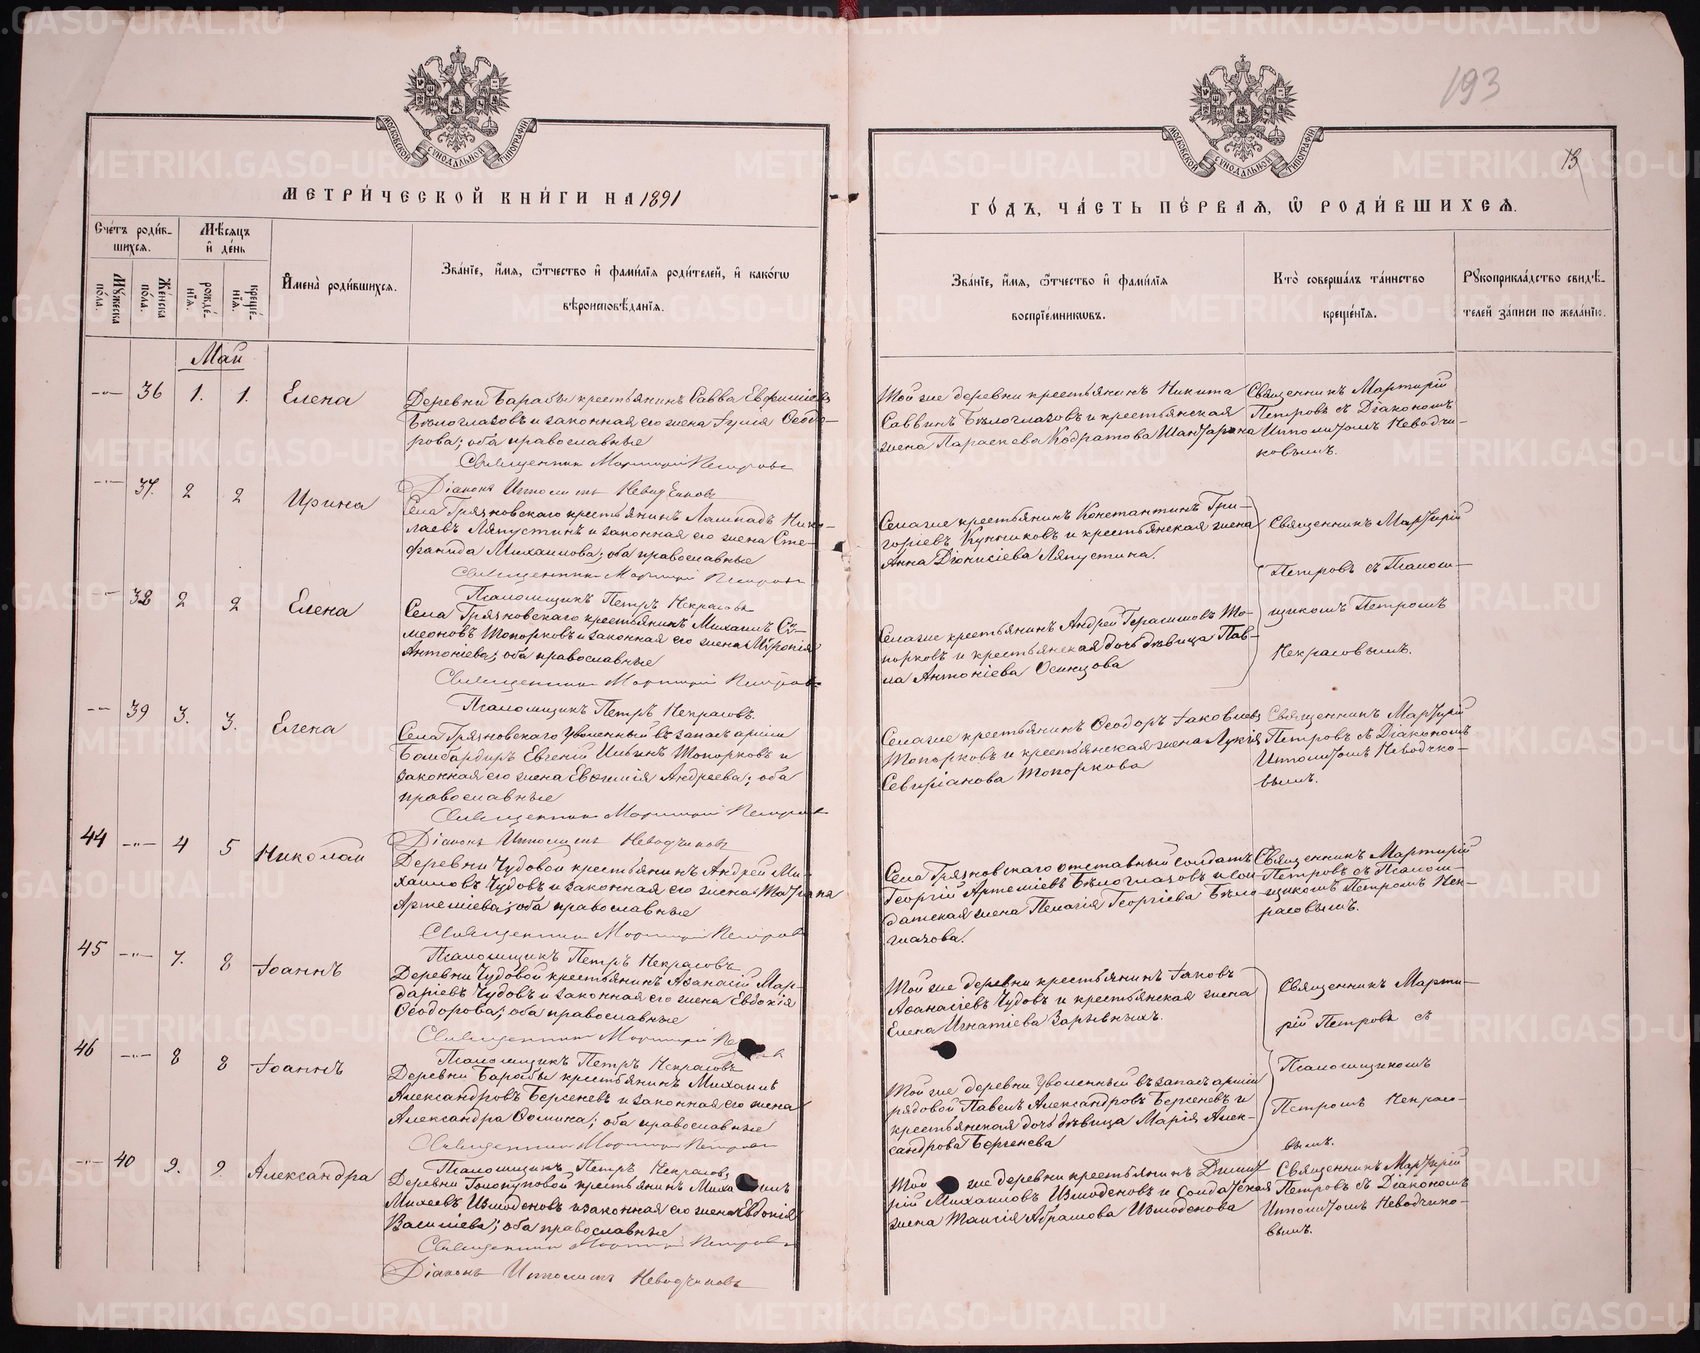 193
13
МОСКОВСКОЙ СУНОДАЛЬНОЙ ТИПОГРАФИИ
МОСКОВСКОЙ СУНОДАЛЬНОЙ ТИПОГРАФИИ
МЕТРИ́ЧЕСКОЙ КНИ́ГИ НА 1891
ГО́ДЪ, ЧА́СТЬ ПЕ́РВАЯ, Ѡ РОДИ́ВШИХСЯ.
Сче́тъ роди́вшихся.
Мꙋжеска по́ла.
Же́нска по́ла.
Мѣ́сяцъ и де́нь
рожде́нїя.
креще́нїя.
Имена̀ роди́вшихся.
Зва́нїе, и́мя, ѻ́тчество и фами́лїя роди́телей, и како́гѡ
вѣроисповѣ́данїя.
Зва́нїе, и́мя, ѻ́тчество и фами́лїя
воспрїе́мникѡвъ.
Кто̀ соверша́лъ та́инство
креще́нїя.
Рꙋкоприкла́дство свидѣ́-
телей за́писи по жела́нїю.
Май
36 1. 1. Елена
Деревни Барабы крестьянинъ Савва Евфимiевъ
Бѣлоглазовъ и законная его жена Iулiя Ѳеодо-
рова; оба православные
Священникъ Мартирiй Петровъ
Дiаконъ Ипполитъ Неводчиковъ
Той же деревни крестьянинъ Никита
Саввинъ Бѣлоглазовъ и крестьянская
жена Параскева Кодратова Шантарина
Священникъ Мартирiй
Петровъ съ Дiакономъ
Ипполитомъ Неводчи-
ковымъ.
37. 2 2 Ирина
Села Грязновскаго крестьянинъ Лампадъ Нико-
лаевъ Ляпустинъ и законная его жена Сте-
фанида Михаилова; оба православные
Священникъ Мартирiй Петровъ
Псаломщикъ Петръ Некрасовъ
Села же крестьянинъ Константинъ Гри-
горiевъ Кунниковъ и крестьянская жена
Анна Дiонисiева Ляпустина.
Священникъ Мартирiй
Петровъ съ Псалом-
щикомъ Петромъ
Некрасовымъ.
38 2 2 Елена
Села Грязновскаго крестьянинъ Михаилъ Сѵ-
меоновъ Топорковъ и законная его жена
Антонiева; оба православные
Священникъ Мартирiй Петровъ
Псаломщикъ Петръ Некрасовъ.
Села же крестьянинъ Андрей Герасимовъ То-
порковъ и крестьянская дочь дѣвица Пав-
ла Антонiева Осинцова
39 3. 3. Елена
Села Грязновскаго уволенный въ запасъ армiи
Бомбардиръ Евгенiй Ильинъ Топорковъ и
законная его жена Евфимiя Андреева; оба
православные
Священникъ Мартирiй Петровъ
Дiаконъ Ипполитъ Неводчиковъ
Села же крестьянинъ Ѳеодоръ Iаковлевъ
Топорковъ и крестьянская жена Лукiя
Северiанова Топоркова
Священникъ Мартирiй
Петровъ съ Дiакономъ
Ипполитомъ Неводчко-
вымъ.
44 4 5 Николай
Деревни Чудовой крестьянинъ Андрей Ми-
хаиловъ Чудовъ и законная его жена Татiана
Артемiева; оба православные
Священникъ Мартирiй Петровъ
Псаломщикъ Петръ Некрасовъ
Села Грязновскаго отставный солдатъ
Георгiй Артемiевъ Бѣлоглазовъ и сол-
датская жена Пелагiя Георгiева Бѣло-
глазова.
Священникъ Мартирiй
Петровъ съ Псалом-
щикомъ Петромъ Нек-
расовымъ.
45 7. 8 Iоаннъ
Деревни Чудовой крестьянинъ Аѳанасiй Мар-
дарiевъ Чудовъ и законная его жена Евдокiя
Ѳеодорова; оба православные
Священникъ Мартирiй
Псаломщикъ Петръ Некрасовъ
Той же деревни крестьянинъ Iаковъ
Аѳанасiевъ Чудовъ и крестьянская жена
Елена Игнатiева Зарывныхъ.
Священникъ Марти-
рiй Петровъ съ
Псаломщикомъ
Петромъ Некрасо-
вымъ.
46 8 8 Iоаннъ
Деревни Барабы крестьянинъ Михаилъ
Александровъ Берсеневъ и законная его жена
Александра Ѳомина; оба православные
Священникъ Мартирiй Петровъ
Псаломщикъ Петръ Некрасовъ
Той же деревни уволенный въ запасъ армiи
рядовой Павелъ Александровъ Берсеневъ и
крестьянская дочь дѣвица Марiя Алек-
сандрова Берсенева
40 9. 9. Александра
Деревни Голопуповой крестьянинъ Михаилъ
Михеевъ Измоденовъ и законная его жена Евдокiя
Василiева; оба православные
Священникъ Мартирiй Петровъ
Дiаконъ Ипполитъ Неводчиковъ
Той же деревни крестьянинъ Димит-
рiй Михаиловъ Измоденовъ и солдатская
жена Таисiя Абрамова Измоденова
Священникъ Мартирiй
Петровъ съ Дiакономъ
Ипполитомъ Неводчико-
вымъ.
METRIKI.GASO-URAL.RU